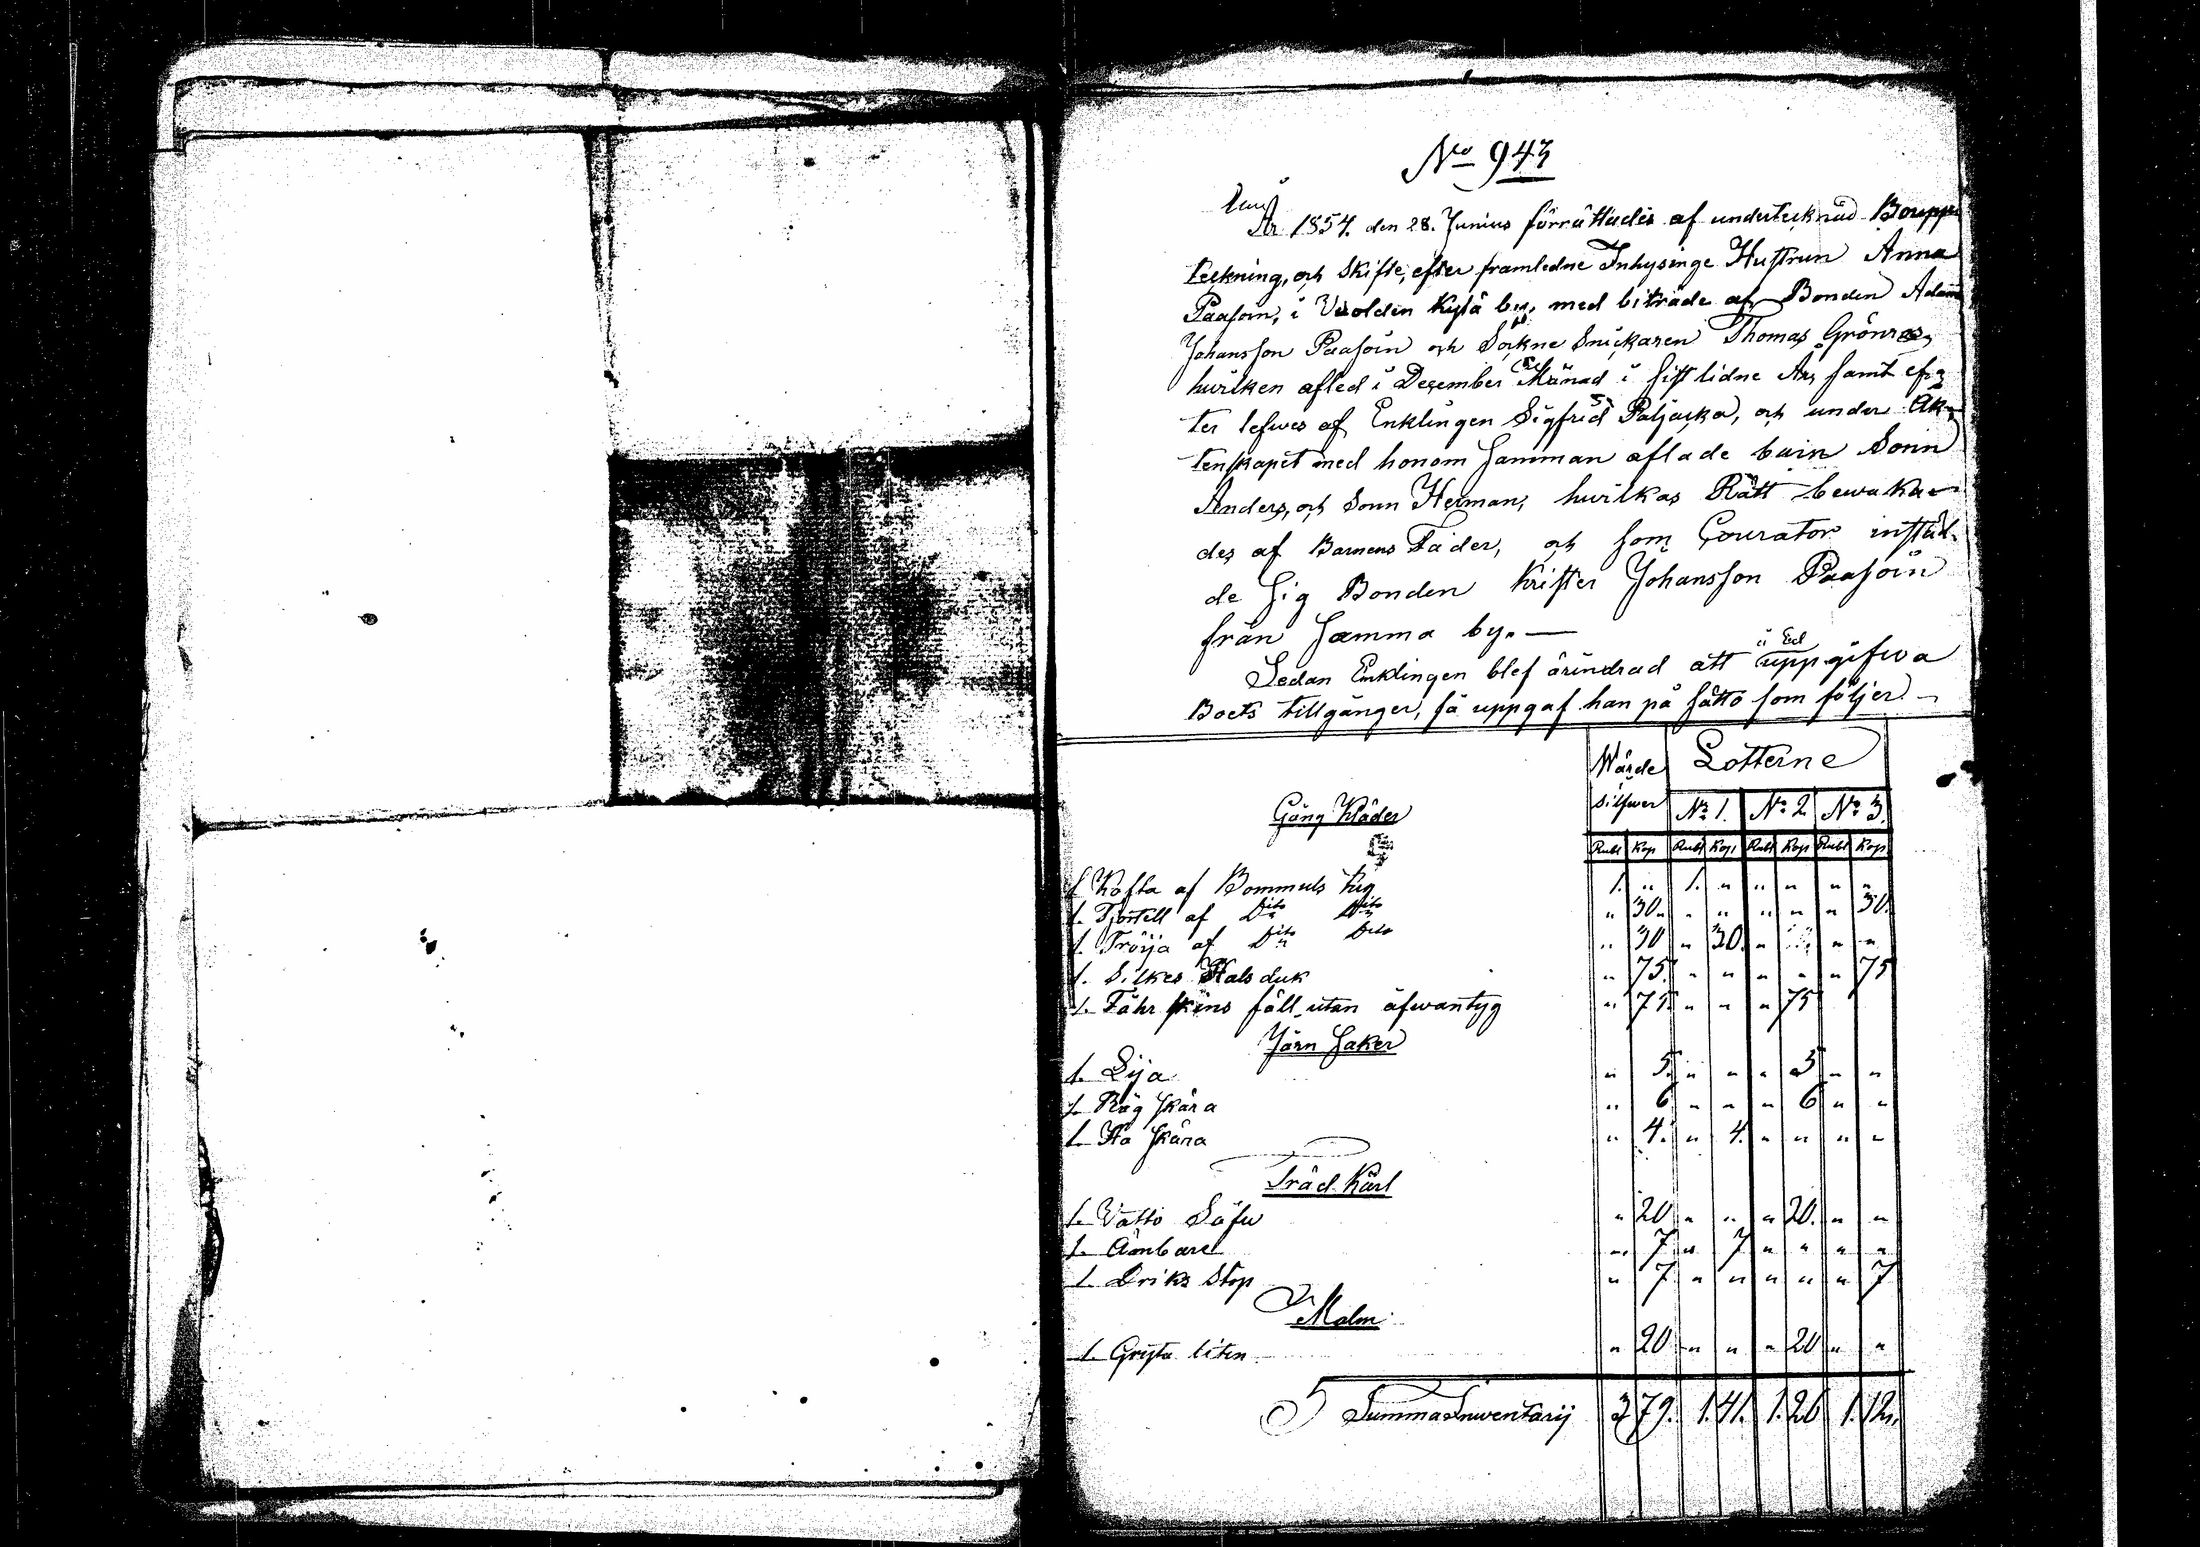 No 943
År 1854. den 28. Junius förrättades af undertecknad Boupp
teckning, och Skifte, efter framledne Inhysinge Hustrun Anna
Paasoin, i Kylä by, med biträde af Bonden Adam
Johansson Paasoin och Sockne Snickaren Thomas Grönroos,
hvilken afled i December Månad i sist lidne År, samt ef=
ter lefwes af Enklingen Sigfrid Paljacka, och under Äk=
tenskapet med honom samman aflade barn Sonn
Anders, och Sonn Herman, hwilkas Rätt bewaka=
des af Barnens Fader, och som Courator instäl=
de sig Bonden Krister Johansson Paasoin
från samma by. —
Sedan Enklingen blef ärindrad att å Ed uppgifwa
Boets tillgånger, så uppgaf han på sätto som följer —
Wärde Silfwer Lotterne
Gång Kläder No 1. No 2 No 3.
Rubl Kop Rubl Kop Rubl Kop Rubl Kop
1 Kofta af Bommuls tyg 1. " 1. " " " " "
1. af Dito Dito " 30 " " " " " 30.
1. Tröija af Dito Dito " 30 " 30. " " " "
1. Silkes Halsduk " 75. " " " " " 75
1. Fåhr skins fäll utan åfwantyg " 75. " " " 75
Järn Saker
1. Lija " 5. " " " 5 " "
1. Råg skära " 6 " " " 6 " "
1. Hö skära " 4. " 4. " " " "
Träd Kärl
1. Vatto Såfw " 20 " " " 20. " "
1. Ämbare " 7 " 7 " " " "
1. Driks Stop " 7 " " " " " 7
Malm
1. Gryta liten " 20 " " " 20 " "
Summa Inwentarij 3 79. 1. 41. 1. 26 1. 12.